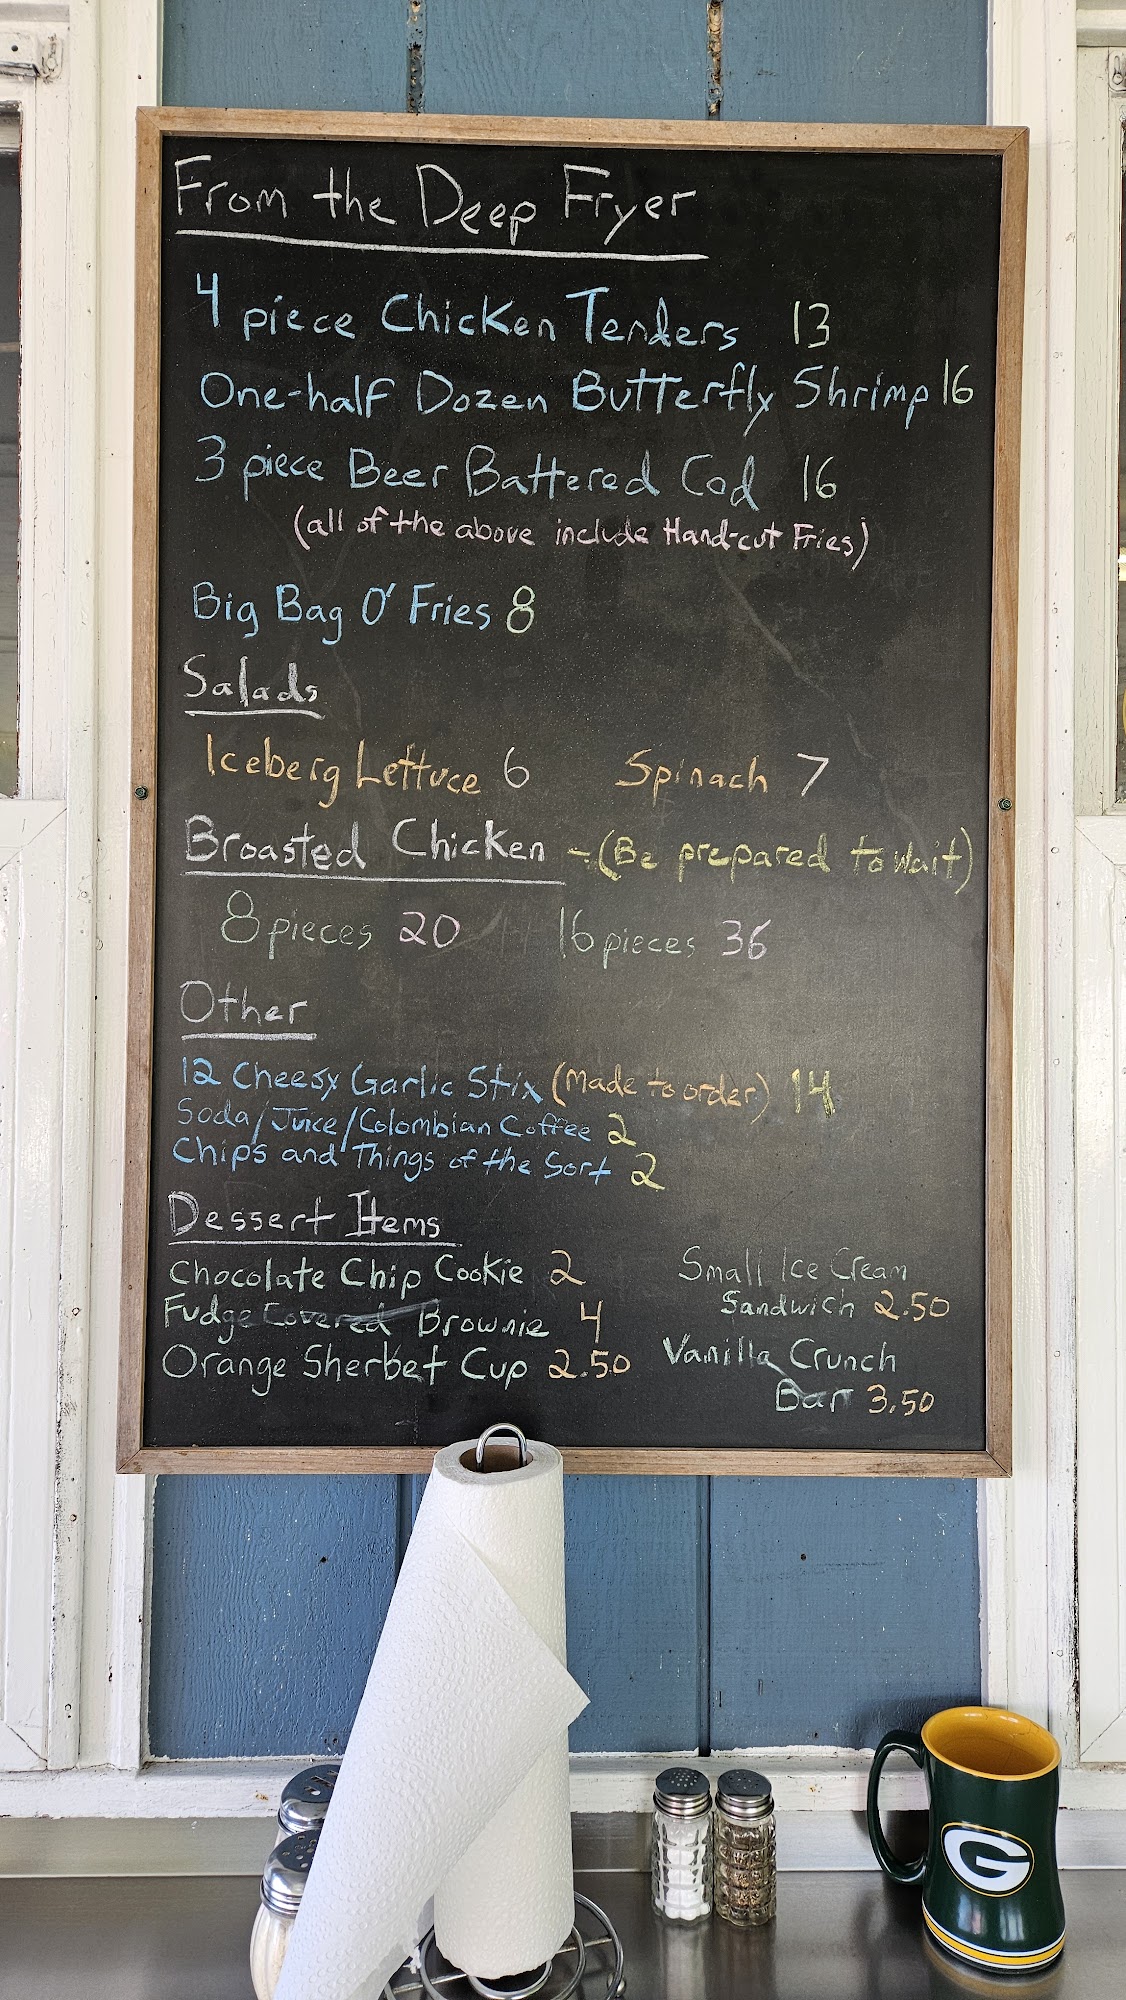 From the Deep Fryer
4 piece Chicken Tenders 13
One-half Dozen Butterfly Shrimp 16
3 piece Beer Battered Cod 16
(all of the above include Hand-cut Fries)
Big Bag O' Fries 8
Salads
Iceberg Lettuce 6 Spinach 7
Broasted Chicken - (Be prepared to Wait)
8 pieces 20 16 pieces 36
Other
12 Cheesy Garlic Stix (Made to order) 14
Soda/Juice/Colombian Coffee 2
Chips and Things of the Sort 2
Dessert Items
Chocolate Chip Cookie 2
Fudge Covered Brownie 4
Orange Sherbet Cup 2.50
Small Ice Cream
Sandwich 2.50
Vanilla Crunch
Bar 3.50
G